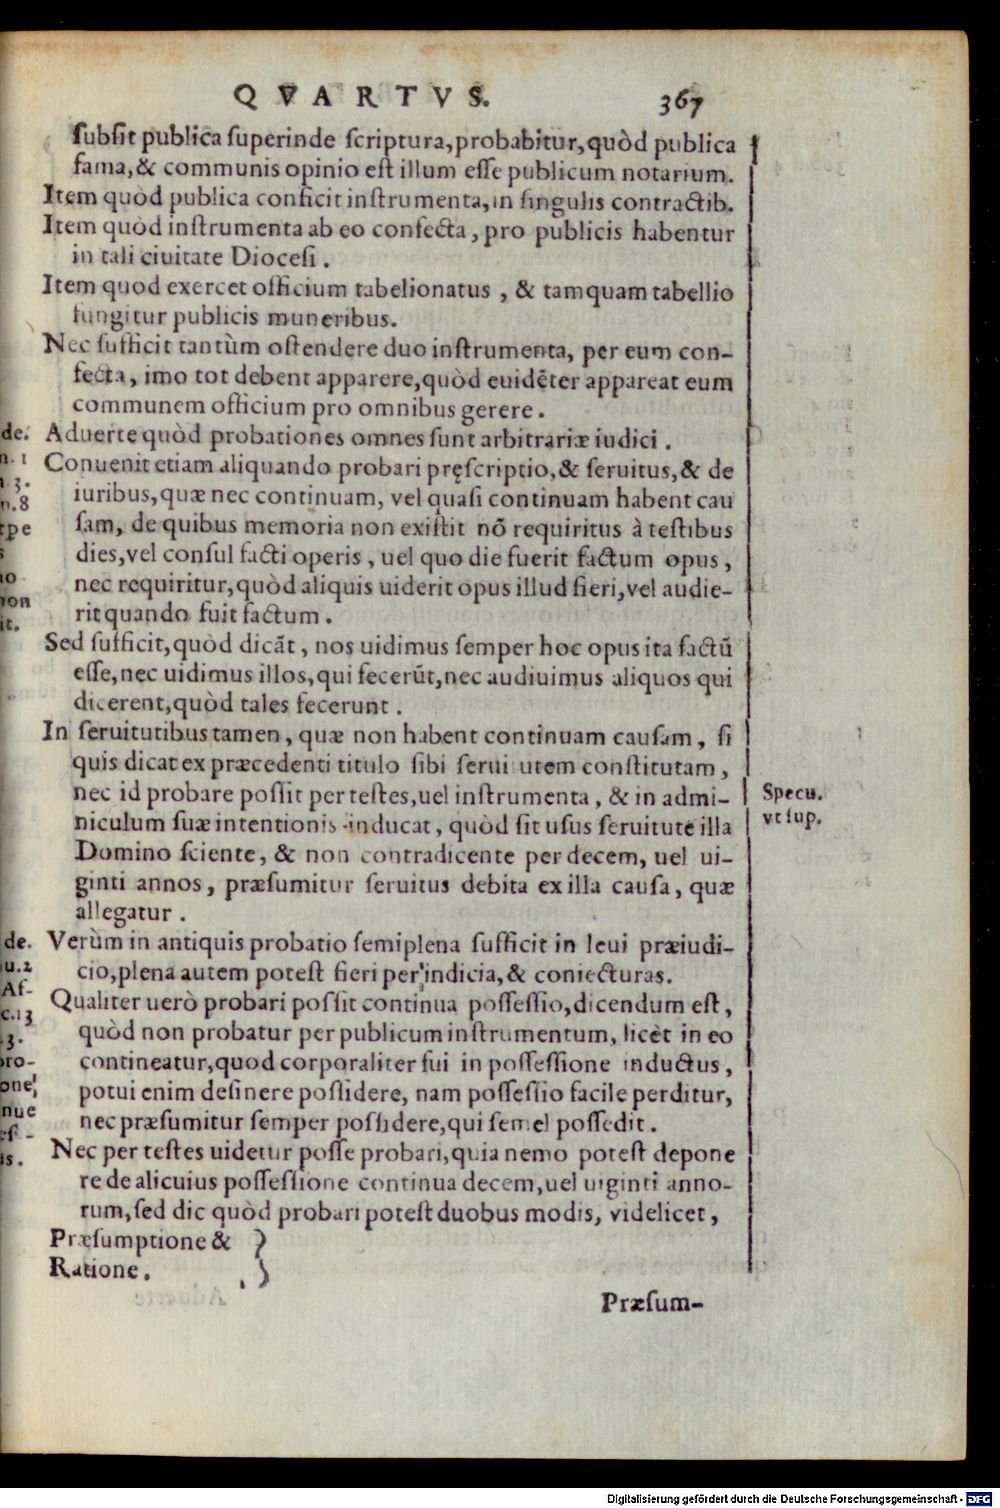 QVARTVS. 367
ſubſit publica ſuperinde ſcriptura,probabitur,quòd publica
fama,& communis opinio eſt illum eſſe publicum notarium.
Item quòd publica conficit inſtrumenta,in ſingulis contractib.
Item quòd inſtrumenta ab eo confecta, pro publicis habentur
in tali ciuitate Diocesi.
Item quod exercet officium tabelionatus, & tamquam tabellio
fungitur publicis muneribus.
Nec ſufficit tantùm oſtendere duo inſtrumenta, per eum con-
fecta, imo tot debent apparere,quòd euidēter appareat eum
communem officium pro omnibus gerere.
Aduerte quòd probationes omnes ſunt arbitrariæ iudici.
Conuenit etiam aliquando probari pręſcriptio,& ſeruitus,& de
iuribus,quæ nec continuam, vel quaſi continuam habent cau
ſam, de quibus memoria non exiſtit nō requiritus à teſtibus
dies,vel conſul facti operis, uel quo die fuerit factum opus,
nec requiritur,quòd aliquis uiderit opus illud fieri,vel audie-
rit quando fuit factum.
Sed ſufficit,quòd dicāt, nos uidimus ſemper hoc opus ita factū
eſſe,nec uidimus illos,qui fecerūt,nec audiuimus aliquos qui
dicerent,quòd tales fecerunt.
In ſeruitutibus tamen, quæ non habent continuam cauſam, ſi
quis dicat ex præcedenti titulo ſibi ſerui utem conſtitutam,
nec id probare poſſit per teſtes,uel inſtrumenta, & in admi-
niculum ſuæ intentionis inducat, quòd ſit uſus ſeruitute illa
Domino ſciente, & non contradicente per decem, uel ui-
ginti annos, præſumitur ſeruitus debita ex illa cauſa, quæ
allegatur.
Specu.
vt ſup.
Verùm in antiquis probatio ſemiplena ſufficit in leui præiudi-
cio,plena autem poteſt fieri per indicia,& coniecturas.
Qualiter uerò probari poſſit continua poſſeſſio,dicendum eſt,
quòd non probatur per publicum inſtrumentum, licèt in eo
contineatur,quod corporaliter fui in poſſeſſione inductus,
potui enim deſinere poſſidere, nam poſſeſſio facile perditur,
nec præſumitur ſemper poſſidere,qui ſemel poſſedit.
Nec per teſtes uidetur poſſe probari,quia nemo poteſt depone
re de alicuius poſſeſſione continua decem,uel uiginti anno-
rum,ſed dic quòd probari poteſt duobus modis, videlicet,
Præſumptione & }
Ratione. }
Præſum-
de.
n. 1
3.
n.8
non
it.
de.
u.2
Aſ-
c.13
3.
one,
nue
is.
Digitalisierung gefördert durch die Deutsche Forschungsgemeinschaft - DFG